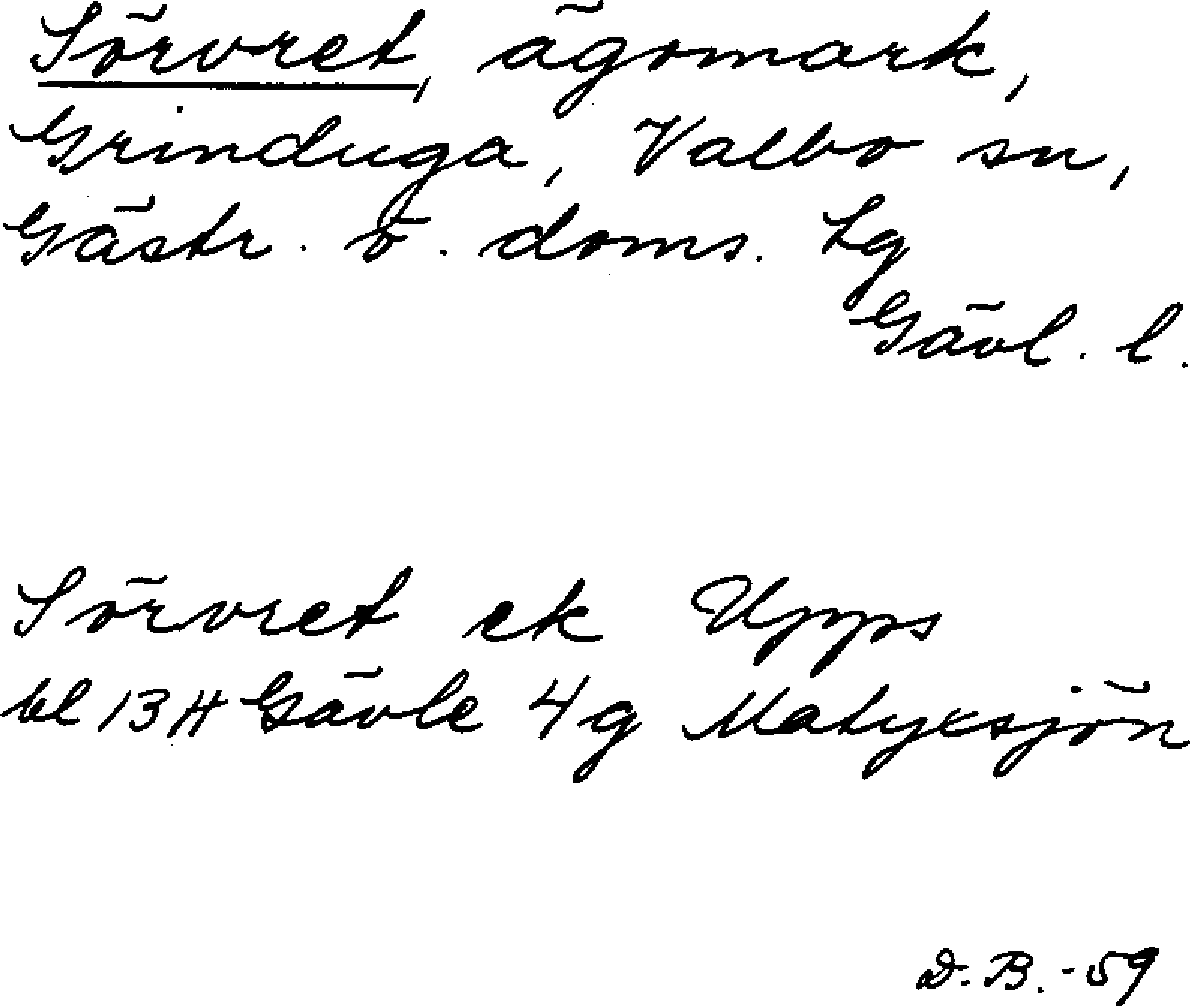 Sörvret, ägomark,
Grinduga, Valbo sn,
Gästr. ö. doms. Lg
Gävl. l.
Sörvret ek Upps
bl 13H Gävle 4g Matyxsjön
D.B.-59